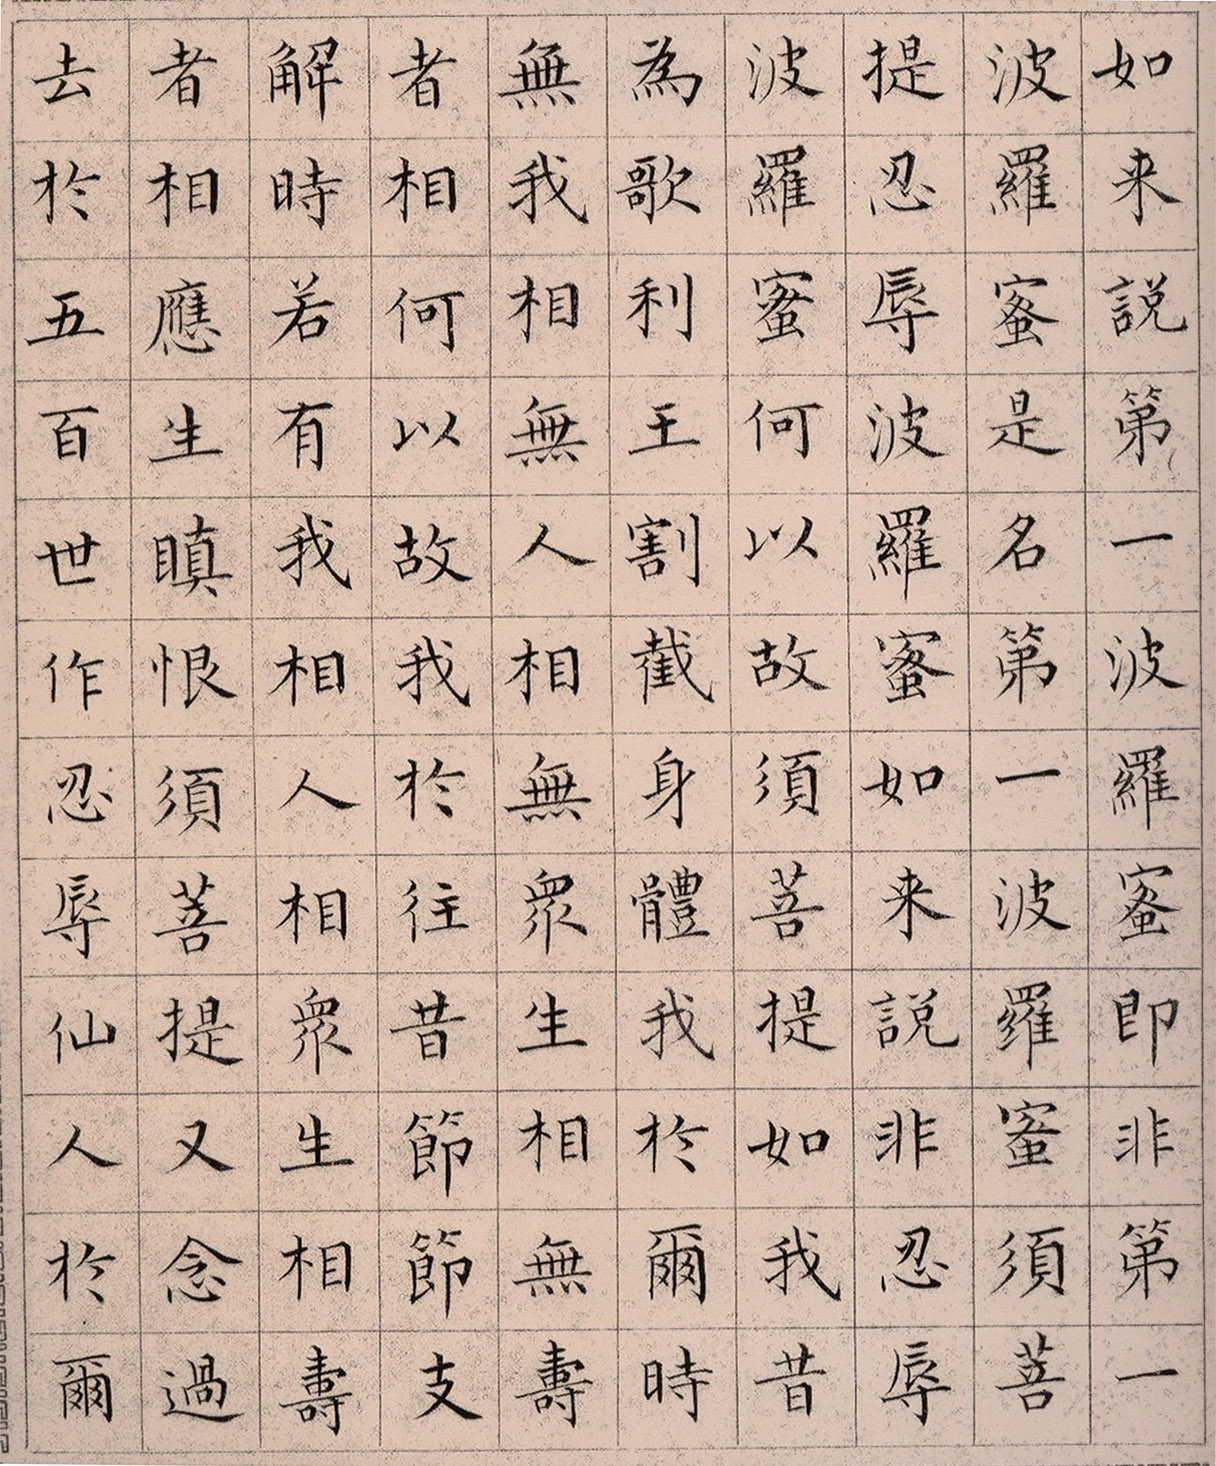 如来説第一波羅蜜即非第一
波羅蜜是名第一波羅蜜須菩
提忍辱波羅蜜如来説非忍辱
波羅蜜何以故須菩提如我昔
為歌利王割截身體我於爾時
無我相無人相無眾生相無壽
者相何以故我於往昔節節支
解時若有我相人相眾生相壽
者相應生瞋恨須菩提又念過
去於五百世作忍辱仙人於爾